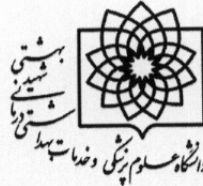 دانشگاه علوم پزشکی و خدمات بهداشتی درمانی
شهید بهشتی